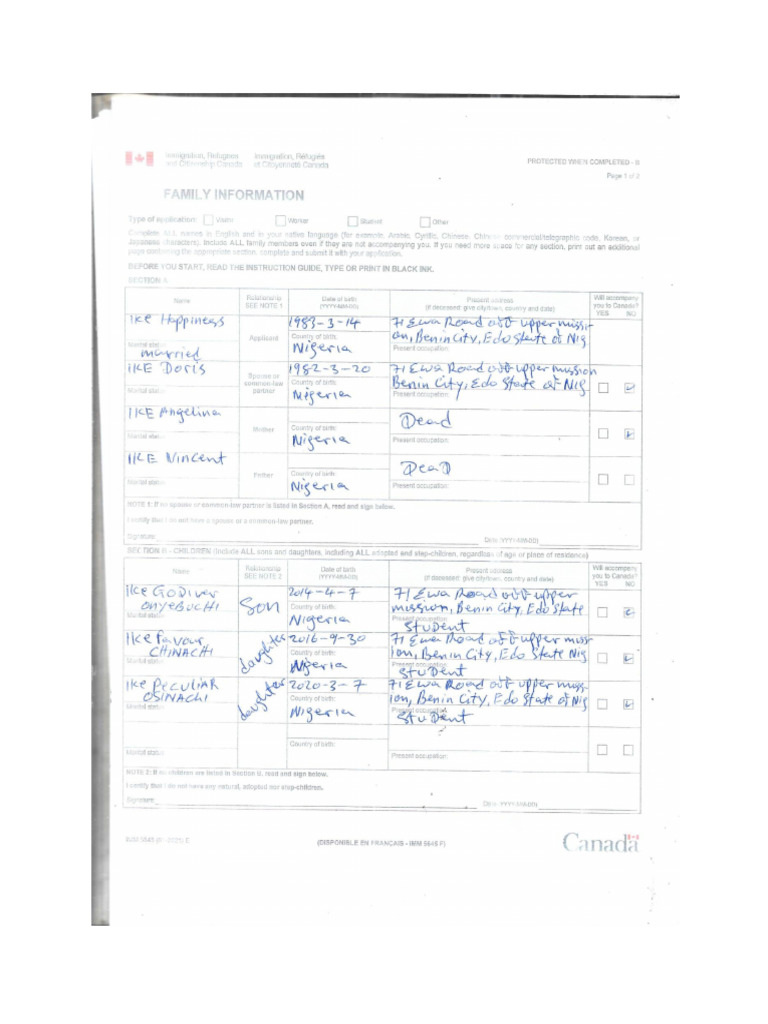 Immigration, Refugees and Citizenship Canada
Immigration, Réfugiés et Citoyenneté Canada
PROTECTED WHEN COMPLETED - B
Page 1 of 2
FAMILY INFORMATION
Type of application: Visitor Worker Student Other
Complete ALL names in English and in your native language (for example, Arabic, Cyrillic, Chinese, Chinese commercial/telegraphic code, Korean, or
Japanese characters). Include ALL family members even if they are not accompanying you. If you need more space for any section, print out an additional
page containing the appropriate section, complete and submit it with your application.
BEFORE YOU START, READ THE INSTRUCTION GUIDE, TYPE OR PRINT IN BLACK INK.
SECTION A
Name
Relationship
SEE NOTE 1
Date of birth
(YYYY-MM-DD)
Present address
(if deceased: give city/town, country and date)
Will accompany
you to Canada?
YES NO
IKE Happiness
Marital status
married
Applicant
1983-3-14
Country of birth:
Nigeria
71 Ewa Road off upper missi-
on, Benin City, Edo State of Nig
Present occupation:
IKE Doris
Marital status
Spouse or
common-law
partner
1982-3-20
Country of birth:
Nigeria
71 Ewa Road off upper mission
Benin City, Edo State of Nig
Present occupation:
IKE Angelina
Marital status
Mother
Country of birth:
Nigeria
Dead
Present occupation:
IKE Vincent
Marital status
Father
Country of birth:
Nigeria
DeaD
Present occupation:
NOTE 1: If no spouse or common-law partner is listed in Section A, read and sign below.
I certify that I do not have a spouse or a common-law partner.
Signature:
Date (YYYY-MM-DD)
SECTION B - CHILDREN (Include ALL sons and daughters, including ALL adopted and step-children, regardless of age or place of residence)
Name
Relationship
SEE NOTE 2
Date of birth
(YYYY-MM-DD)
Present address
(if deceased: give city/town, country and date)
Will accompany
you to Canada?
YES NO
IKe GODIVER
ONYEBUCHI
Marital status
Son
2014-4-7
Country of birth:
Nigeria
71 Ewa Road off upper
mission, Benin City, Edo State
Present occupation:
STUDENT
IKe favour
CHINACHI
Marital status
daughter
2016-9-30
Country of birth:
Nigeria
71 Ewa Road off upper miss
ion, Benin City, Edo State Nig
Present occupation:
STUDENT
IKe PeCULIAR
OSINACHI
Marital status
daughter
2020-3-7
Country of birth:
Nigeria
71 Ewa Road off upper miss-
ion, Benin City, Edo State of Nig
Present occupation:
STUDENT
Marital status
Country of birth:
Present occupation:
NOTE 2: If no children are listed in Section B, read and sign below.
I certify that I do not have any natural, adopted nor step-children.
Signature:
Date (YYYY-MM-DD)
IMM 5645
(DISPONIBLE EN FRANÇAIS - IMM 5645 F)
Canada